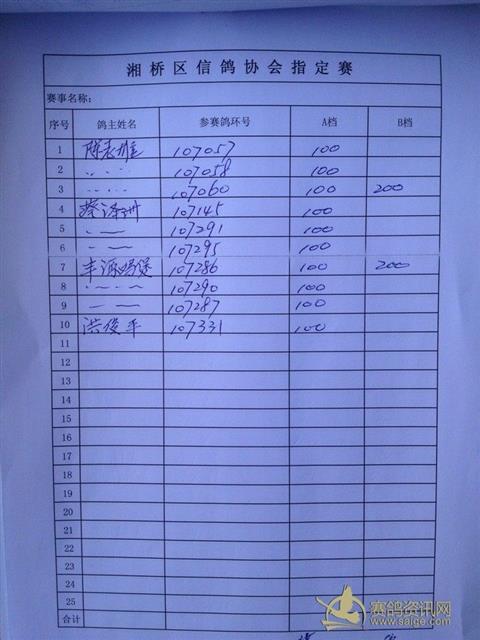 湘桥区信鸽协会指定赛
赛事名称:
序号 鸽主姓名 参赛鸽环号 A档 B档
1 陈志雄 107057 100
2 〃 107058 100
3 〃 107060 100 200
4 蔡泽洲 107145 100
5 〃 107291 100
6 〃 107295 100
7 丰源鸽堡 107286 100 200
8 107290 100
9 107287 100
10 洪俊平 107331 100
11
12
13
14
15
16
17
18
19
20
21
22
23
24
25
合计
赛鸽资讯网
www.saige.com